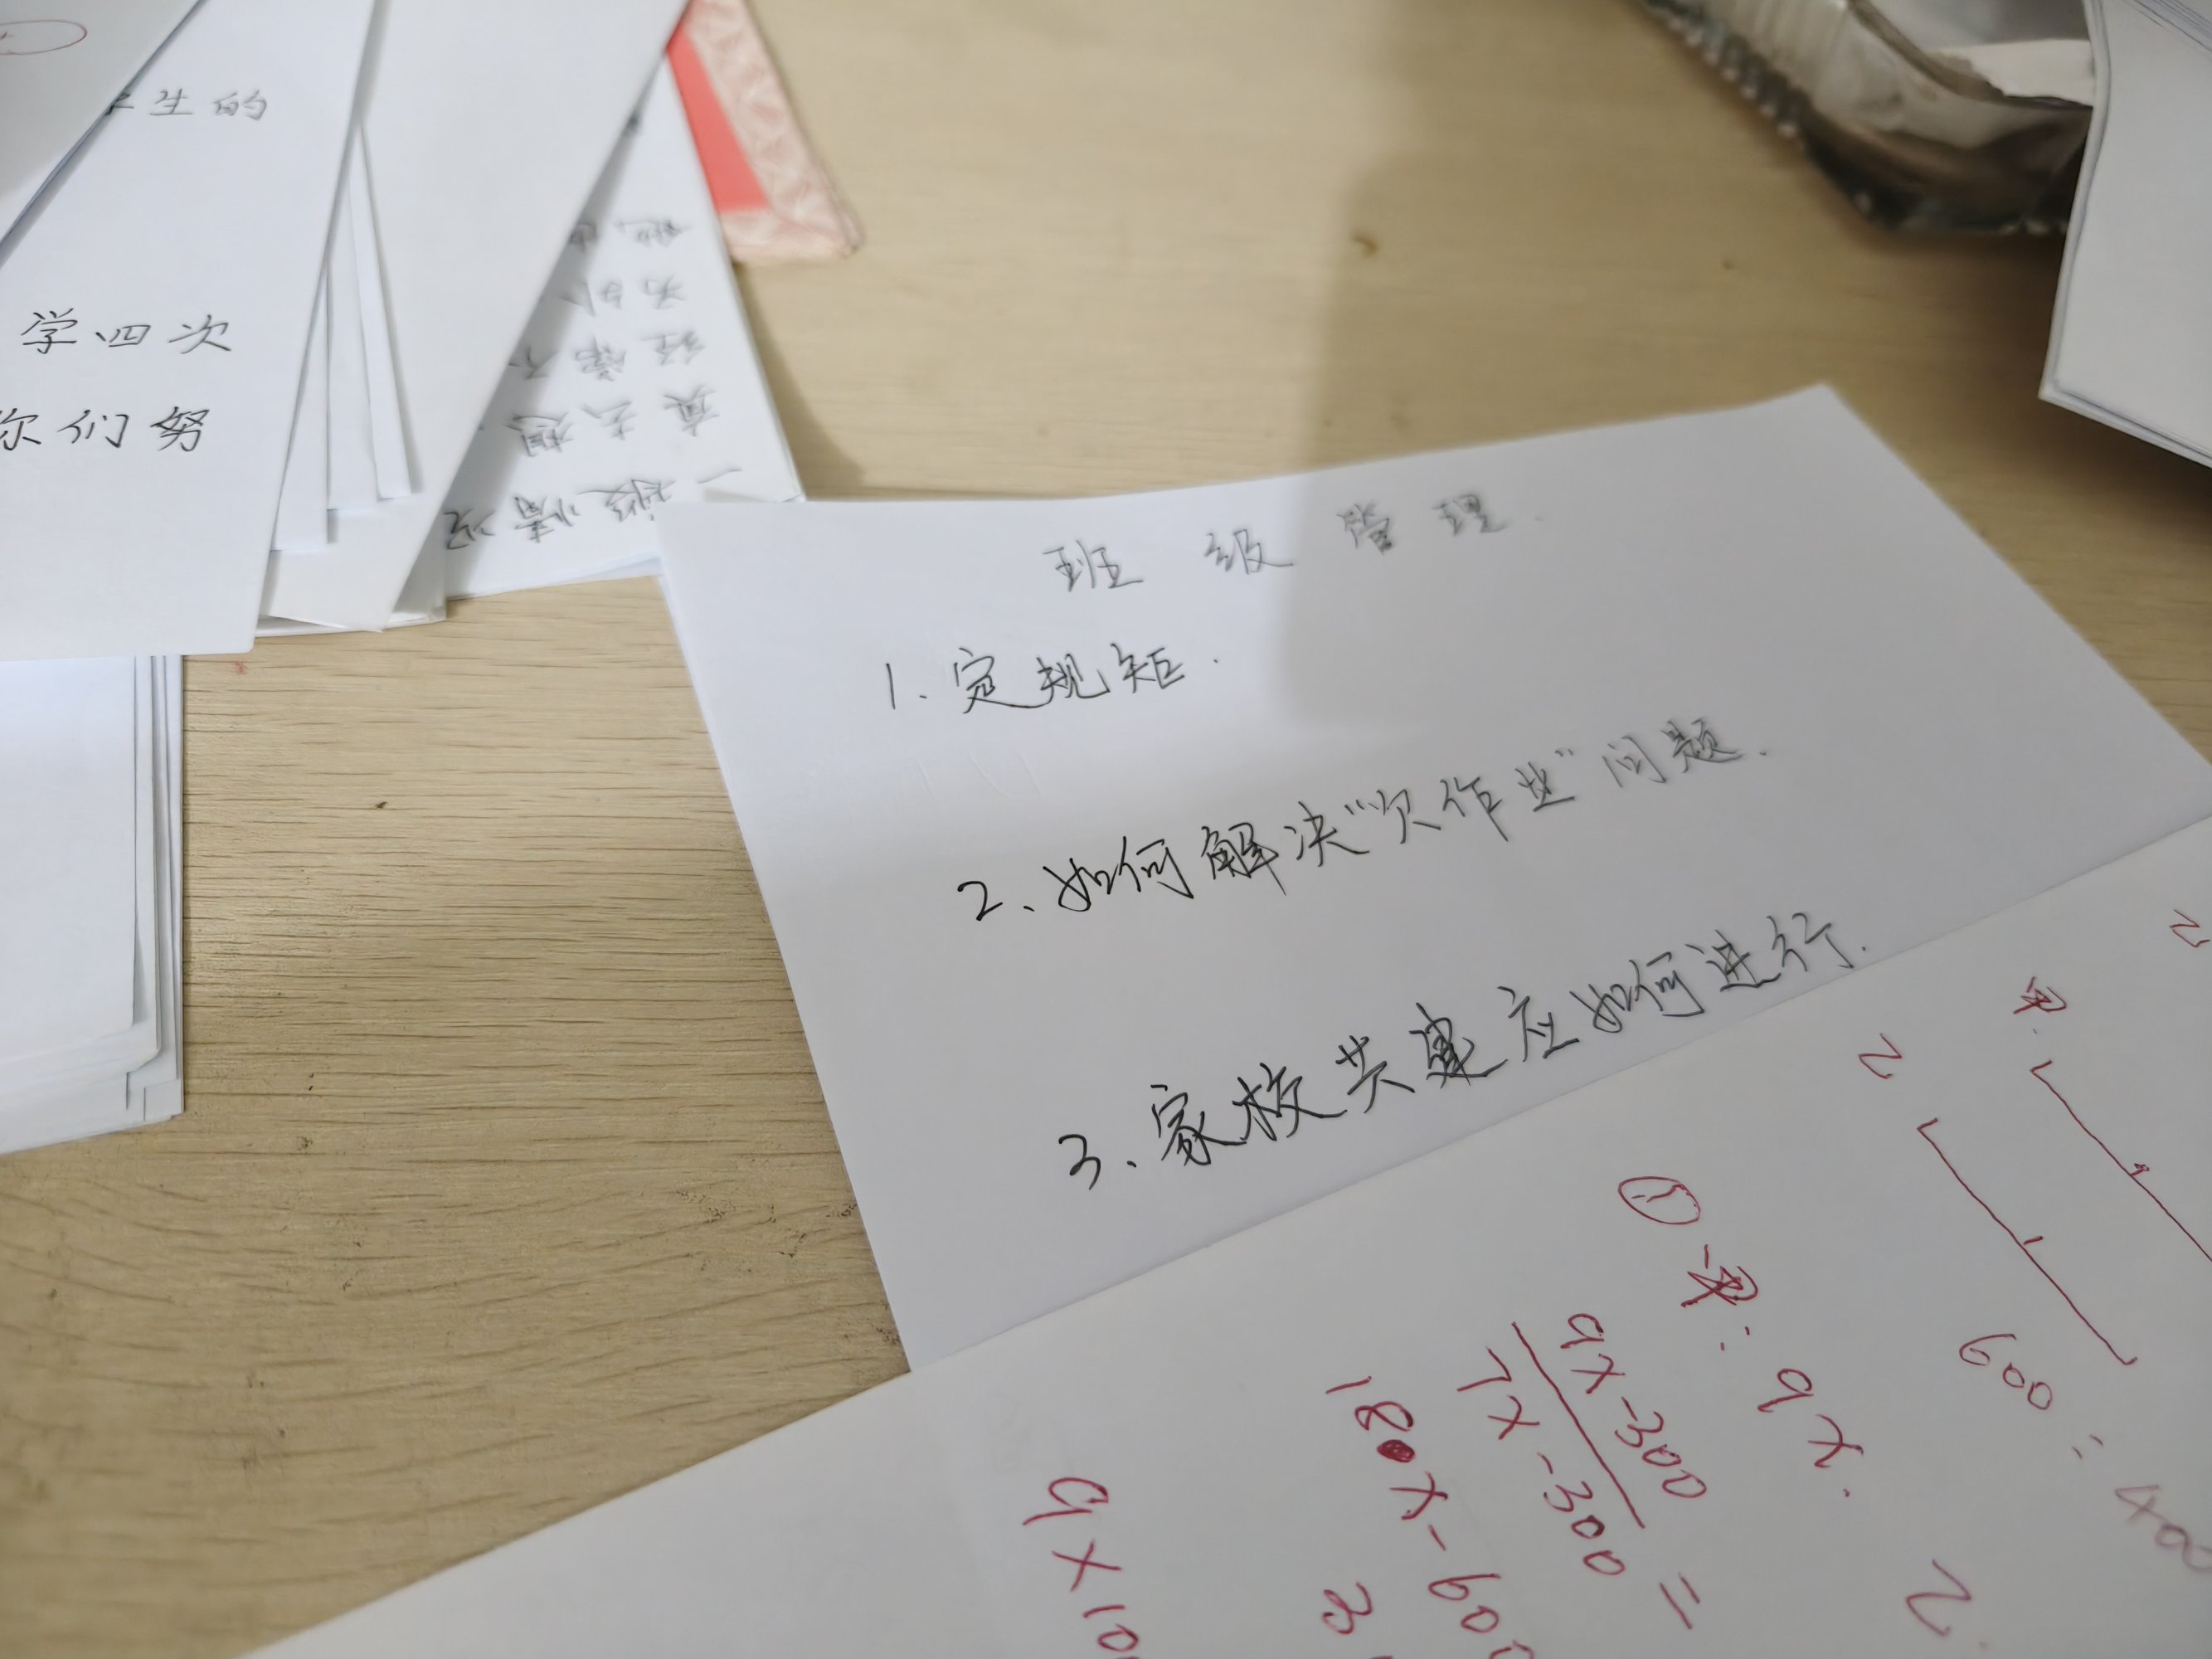 生的
学四次
你们努
真去想
一般情况
班级管理.
1.定规矩.
2、如何解决“欠作业”问题.
3.家校共建应如何进行.
甲.
乙
600:400
①甲:9x.
乙.
9x-300
7x-300
=
180x-600
9x10